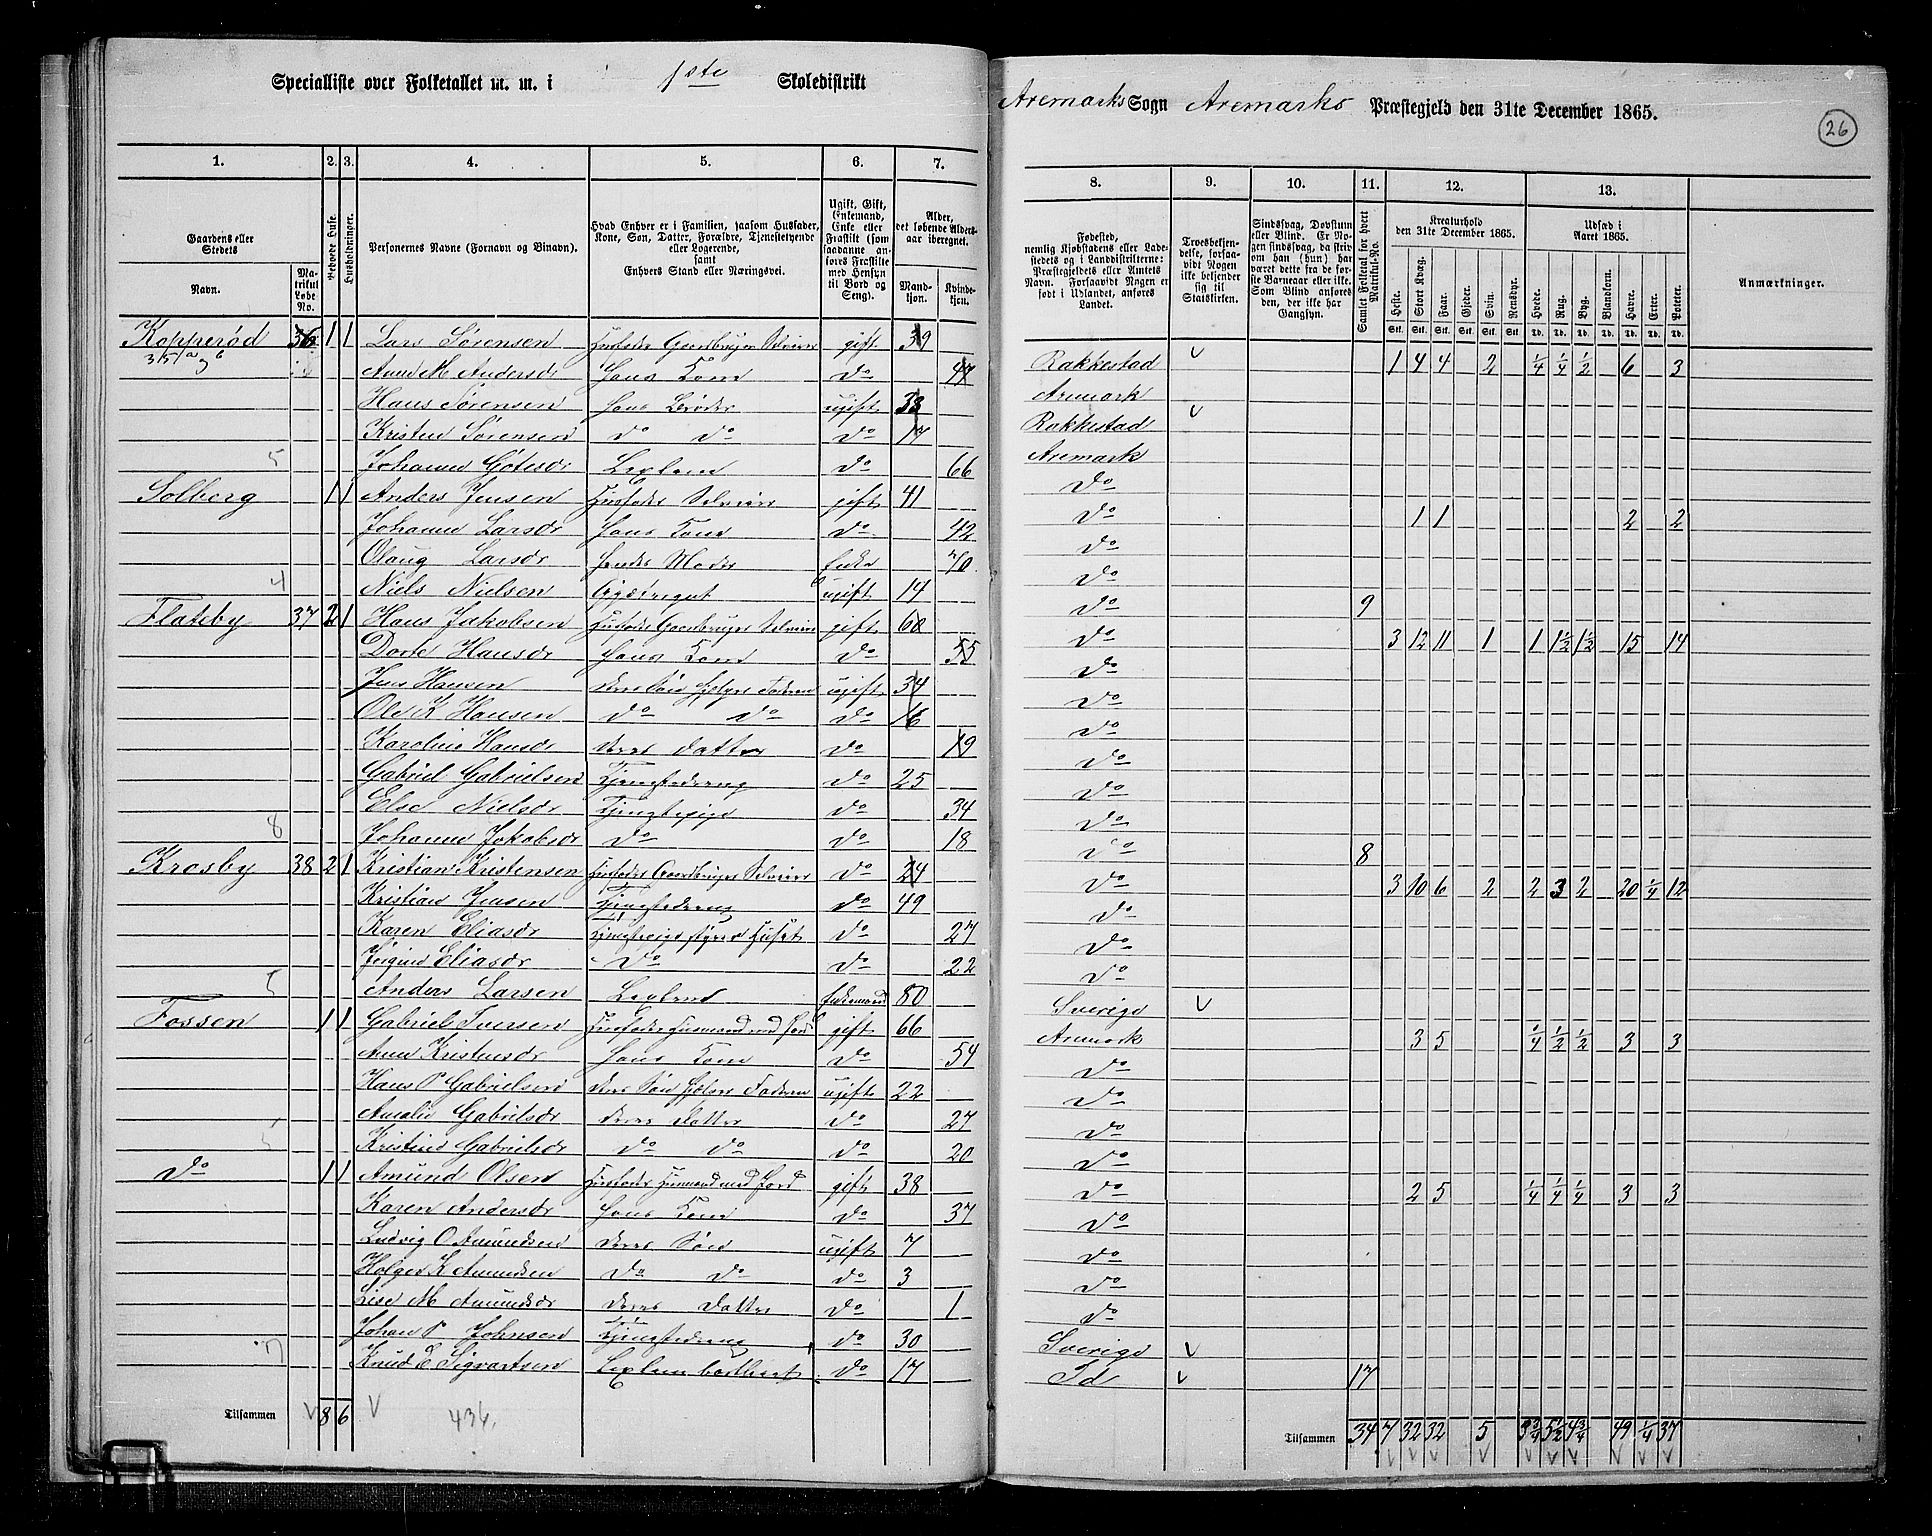 Specialliste over Folketallet m. m. i 1ste Skoledistrikt
Aremarks Sogn Aremarks Præstegjeld den 31te December 1865.
26
1. 2. 3. 4. 5. 6. 7.
8. 9. 10. 11. 12. 13.
Gaardens eller Stedets
Navn.
Matrikul Løbe No.
Beboede Huse.
Husholdninger.
Personernes Navne (Fornavn og Binavn).
Hvad Enhver er i Familien, saasom Husfader, Kone, Søn, Datter, Forældre, Tjenestetyende eller Logerende, samt Enhvers Stand eller Næringsvei.
Ugift, Gift, Enkemand, Enke eller Fraskilt (som saadanne anføres Fraskilte med Hensyn til Bord og Seng).
Alder, det løbende Aldersaar iberegnet.
Mandkjøn. Kvindekjøn.
Fødested, nemlig Kjøbstadens eller Ladestedets og i Landdistrikterne: Præstegjeldets eller Amtets Navn. Forsaavidt Nogen er født i Udlandet, anføres Landet.
Troesbekjendelse, forsaavidt Nogen ikke bekjender sig til Statskirken.
Sindssvag, Døvstum eller Blind. Er Nogen sindssvag, da skriv om han (hun) har været dette fra de første Barneaar eller ikke. Som Blind anføres den, der ikke har Gangsyn.
Samlet Folketal for hvert Matrikul-No.
Kreaturhold den 31te December 1865.
Heste. Stort Kvæg. Faar. Gjeder. Svin. Rensdyr.
Udsæd i Aaret 1865.
Hvede. Rug. Byg. Blandkorn. Havre. Erter. Poteter.
Stk. Stk. Stk. Stk. Stk. Stk. Td. Td. Td. Td. Td. Td. Td.
Anmærkninger.
Kopperød 36 1 1 Lars Sørensen Husfader Gaardbruger Selveier gift 39 Rakkestad v 1 4 4 2 1/4 1/4 1/2 6 3
Anne M Andersdr Hans Kone do 47 Aremark
Hans Sørensen Hans Broder ugift 33 Rakkestad v
Kristen Sørensen do do do 17 Aremark
5 Johanne Gotesdr Leglem do 66 do
Solberg 1 1 Anders Jensen Husfader Selveier gift 41 do 1 1 2 2
Johanne Larsdr Hans Kone do 42 do
Olaug Larsdr Hendes Moder Enke 70 do
4 Niels Nielsen ugift 14 do 9
Flateby 37 2 1 Hans Jakobsen Husfader Gaardbruger Selveier gift 60 do 3 12 11 1 1 1 1/2 1 1/2 15 14
Dorte Hansdr Hans Kone do 55 do
Jens Hansen deres Søn hjelper Faderen ugift 34 do
Ole K Hansen do do do 16 do
Karoline Hansdr deres Datter do 19 do
Gabriel Gabrielsen Tjenestedreng do 25 do
Else Nielsdr Tjenstepige do 34 do
8 Johanne Jakobsdr do do 18 do 8
Krosby 38 2 1 Kristian Kristensen Husfader Gaardbruger Selveier do 24 do 3 10 6 2 2 3 2 20 1/4 12
Kristian Jensen Tjenestedreng do 49 do
Karen Eliasdr Tjenstepige styrer Huset do 27 do
Jørgine Eliasdr do do 22 do
5 Anders Larsen Leglem Enkemand 80 Sverige v
Fossen 1 1 Gabriel Iversen Husfader Husmand med Jord gift 66 Aremark 3 5 1/4 1/2 1/2 3 3
Anne Kristensdr Hans Kone do 54 do
Hans P Gabrielsen deres Søn hjelper Faderen ugift 22 do
Amalie Gabrielsdr deres Datter do 27 do
5 Kristine Gabrielsdr do do do 20 do
do 1 1 Amund Olsen Husfader Husmand med Jord gift 38 do 2 5 1/4 1/4 1/4 3 3
Karen Andersdr Hans Kone do 37 do
Ludvig O Amundsen deres Søn ugift 7 do
Holger K Amundsen do do do 3 do
Lise M Amundsdr deres Datter do 1 do
Johan P Johnsen Tjenestedreng do 30 Sverige v
7 Knud E Sigvartsen Leglem do 17 Id v 17
Tilsammen v 8 6 v 434.
Tilsammen 34 7 32 32 5 3 3/4 5 1/2 4 3/4 49 1/4 37